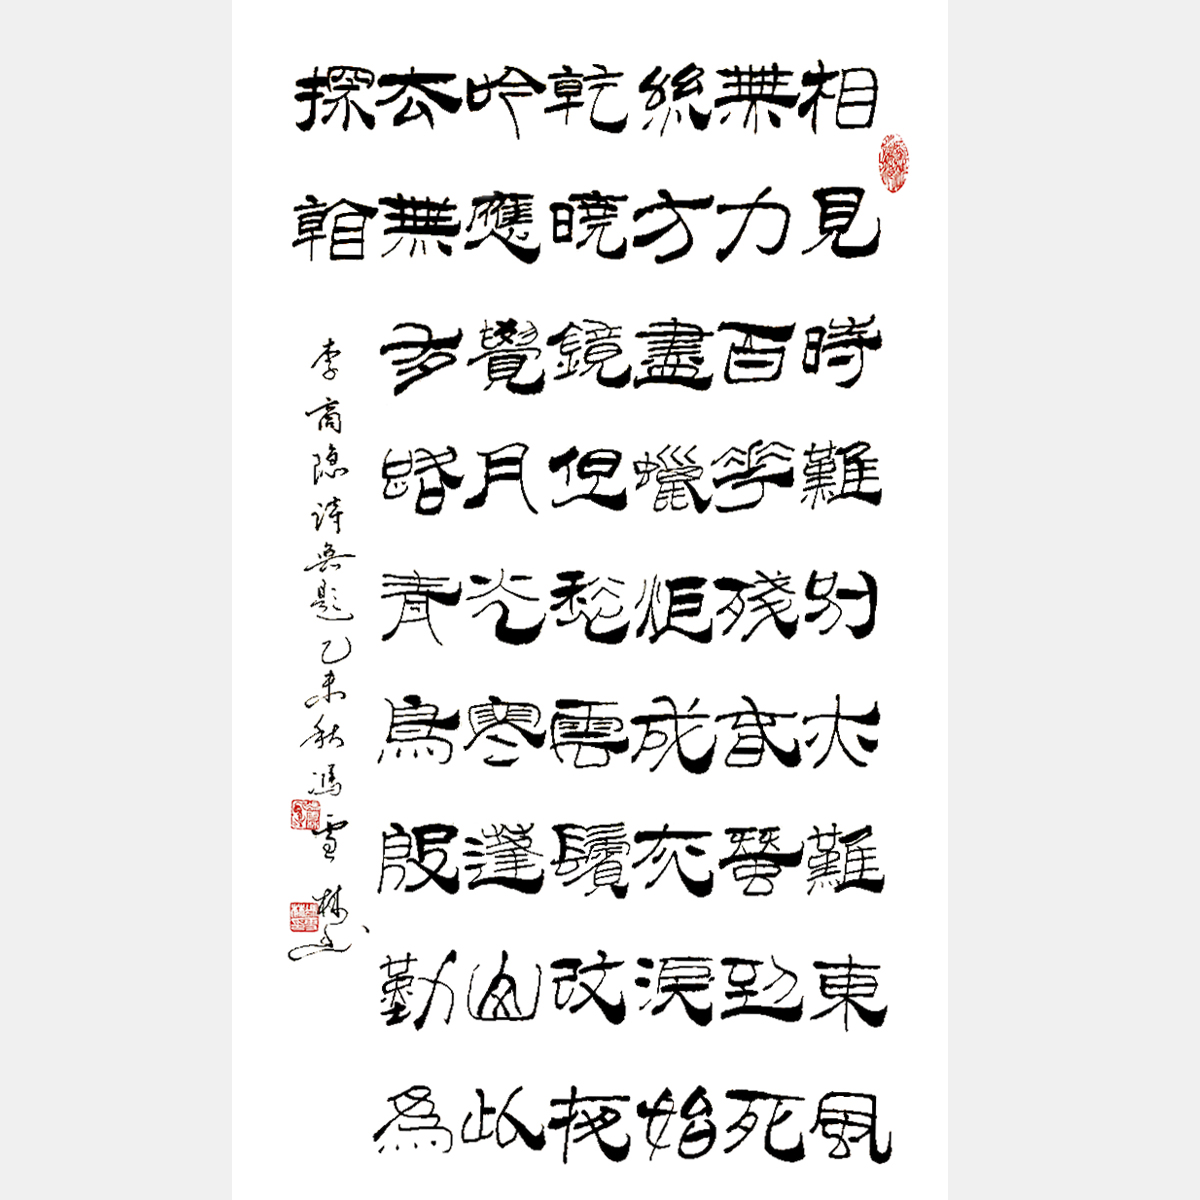 相見時難別亦難東風
無力百花殘春蠶到死
絲方盡蠟炬成灰淚始
乾曉鏡但愁雲鬢改夜
吟應覺月光寒蓬山此
去無多路青鳥殷勤為
探看
李商隐詩無題乙未秋馮雪林书